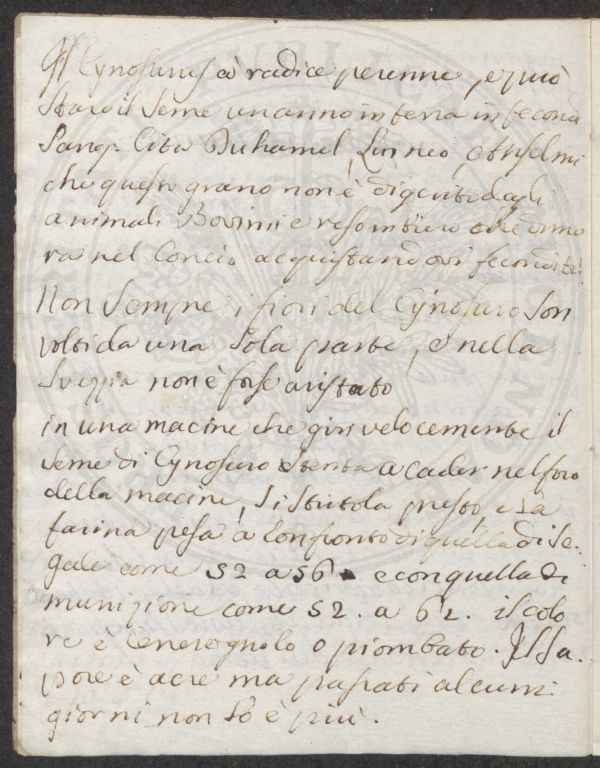 Il Cynosurus à radice perenne, e può
stare il seme un anno in terra infecond
Sang. Cita Duhamel, Linneo, e
che questo grano non è digerito dagli
animali Bovini e reso intiero che dimo
ra nel Concio acquistand ovi fecondità.
Non sempre i fiori del Cynosuro son
volti da una sola parte, e nella
Svezzia non è forse aristato
in una macine che giri velocemente il
seme di Cynosuro stenta a cader nel foro
della macine, si stritola presto, e la
farina pesa a Confronto di quella di Se-
gale come 52 a 56. e con quella di
munizione come 52. a 62. il colo
re è Cenerognolo o piombato. Il Sa.
pore è acre ma passati alcuni
giorni non lo è più.